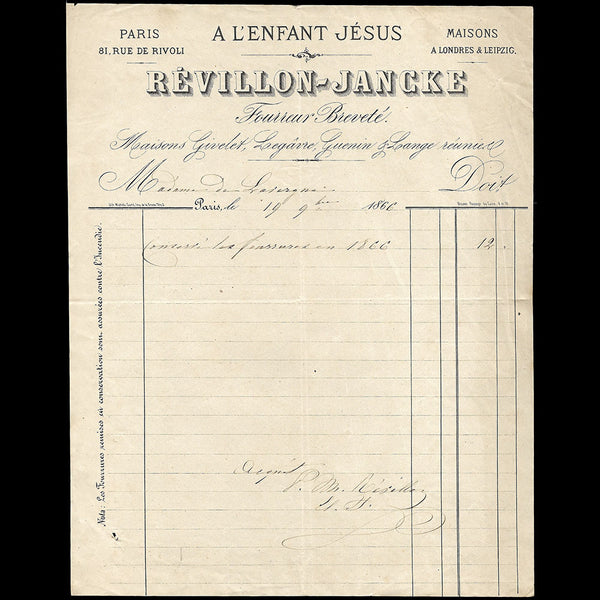 PARIS
81, RUE DE RIVOLI
A L'ENFANT JÉSUS
MAISONS
A LONDRES & LEIPZIG.
RÉVILLON-JANCKE
Fourreur Breveté.
Maisons Givelet, Legâvre, Guenin & Lange réunies
Madame de Doit
Paris, le 19 9bre 1866
Conservé les fourrures en 1866 12
Nota: Les Fourrures remises en conservation sont assurées contre l'Incendie.
Acquit
P. Révillon